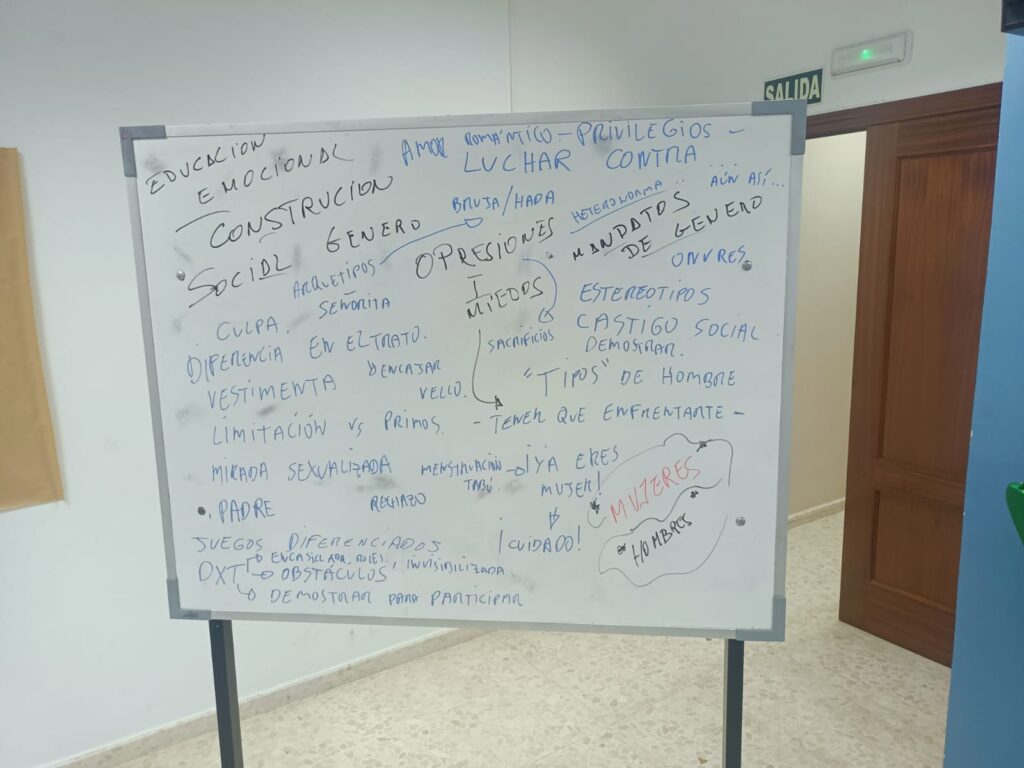 SALIDA
EDUCACION
EMOCIONAL
AMOR ROMÁNTICO - PRIVILEGIOS -
LUCHAR CONTRA
CONSTRUCION
SOCIAL GENERO
BRUJA/HADA
HETERONORMA
... AÚN ASÍ...
ARQUETIPOS
OPRESIONES
MANDATOS
DE GENERO
SEÑORITA
MIEDOS
ONVRES
CULPA.
ESTEREOTIPOS
DIFERENCIA EN EL TRATO.
SACRIFICIOS
CASTIGO SOCIAL
DEMOSTRAR.
VESTIMENTA
ENCAJAR
VELLO.
"TIPOS" DE HOMBRE
LIMITACIÓN vs PRIMOS.
- TENER QUE ENFRENTARTE -
MIRADA SEXUALIZADA
MENSTRUACIÓN
TABÚ.
¡YA ERES
MUJER!
MUJERES
PADRE
RECHAZO
¡CUIDADO!
HOMBRES
JUEGOS DIFERENCIADOS
DXT
ENCASILLADA, ROLES, INVISIBILIZADA
OBSTÁCULOS
DEMOSTRAR PARA PARTICIPAR